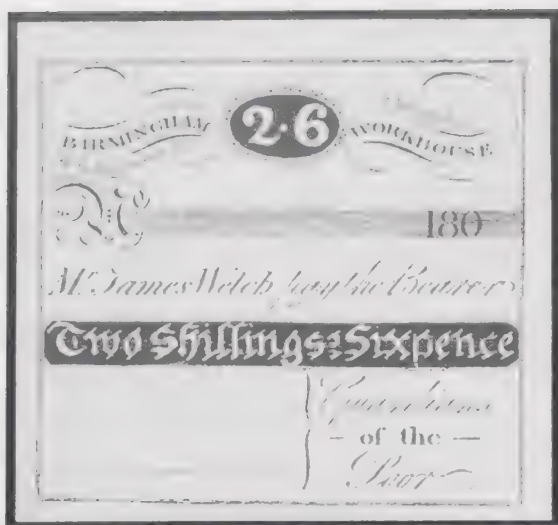 BIRMINGHAM 2·6 WORKHOUSE
No 180
Mr James Welch pay the Bearer
Two Shillings & Sixpence
Guardians
of the
Poor